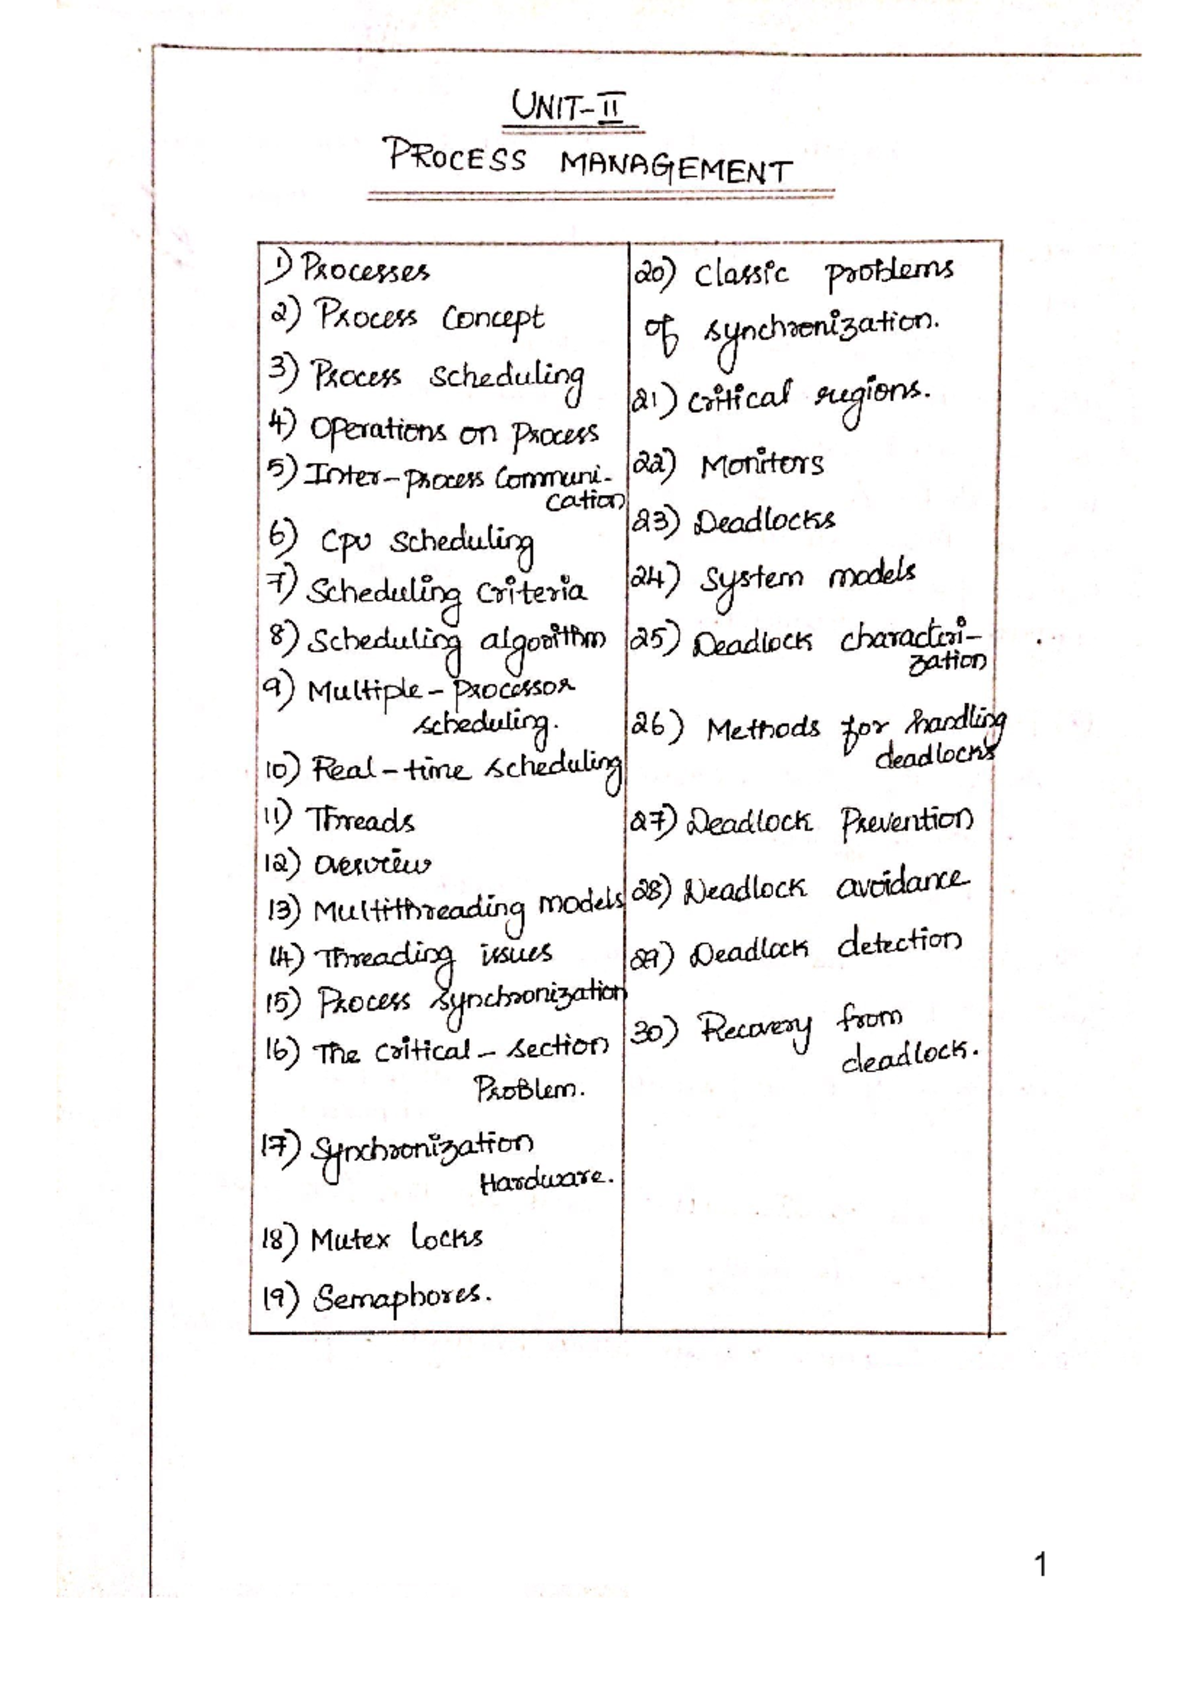 UNIT-II
PROCESS MANAGEMENT
1) Processes
2) Process Concept
3) Process scheduling
4) Operations on Process
5) Inter-process Communi-
cation
6) CPU scheduling
7) Scheduling Criteria
8) Scheduling algorithm
9) Multiple-Processor
scheduling.
10) Real-time scheduling
11) Threads
12) Overview
13) Multithreading models
14) Threading issues
15) Process synchronization
16) The critical-section
Problem.
17) Synchronization
Hardware.
18) Mutex locks
19) Semaphores.
20) Classic problems
of synchronization.
21) Critical regions.
22) Monitors
23) Deadlocks
24) System models
25) Deadlock characteri-
zation
26) Methods for handling
deadlocks
27) Deadlock Prevention
28) Deadlock avoidance
29) Deadlock detection
30) Recovery from
deadlock.
1